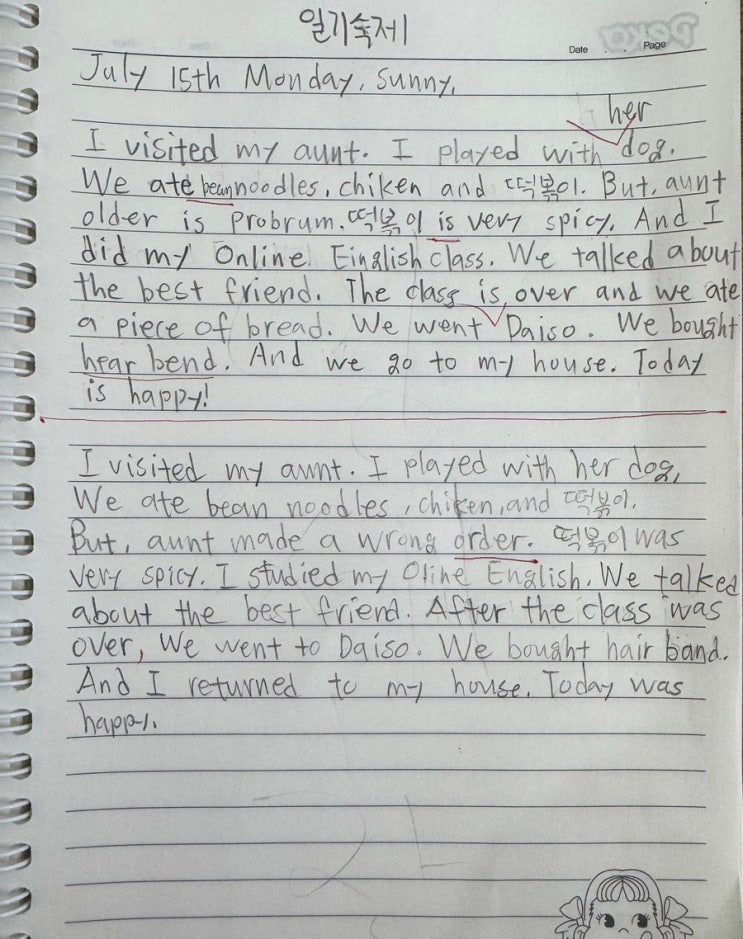 일기숙제
Date . . Page
July 15th Monday, Sunny,
her
I visited my aunt. I played with dog.
We ate bean noodles, chiken and 떡볶이. But, aunt
older is Probrum. 떡볶이 is very spicy. And I
did my Online Einglish class. We talked about
the best friend. The class is over and we ate
a piece of bread. We went Daiso. We bought
hear bend. And we go to my house. Today
is happy!
I visited my aunt. I played with her dog,
We ate bean noodles, chiken, and 떡볶이.
But, aunt made a wrong order. 떡볶이 was
very spicy. I studied my Oline English. We talked
about the best friend. After the class was
over, We went to Daiso. We bought hair band.
And I returned to my house. Today was
happy.